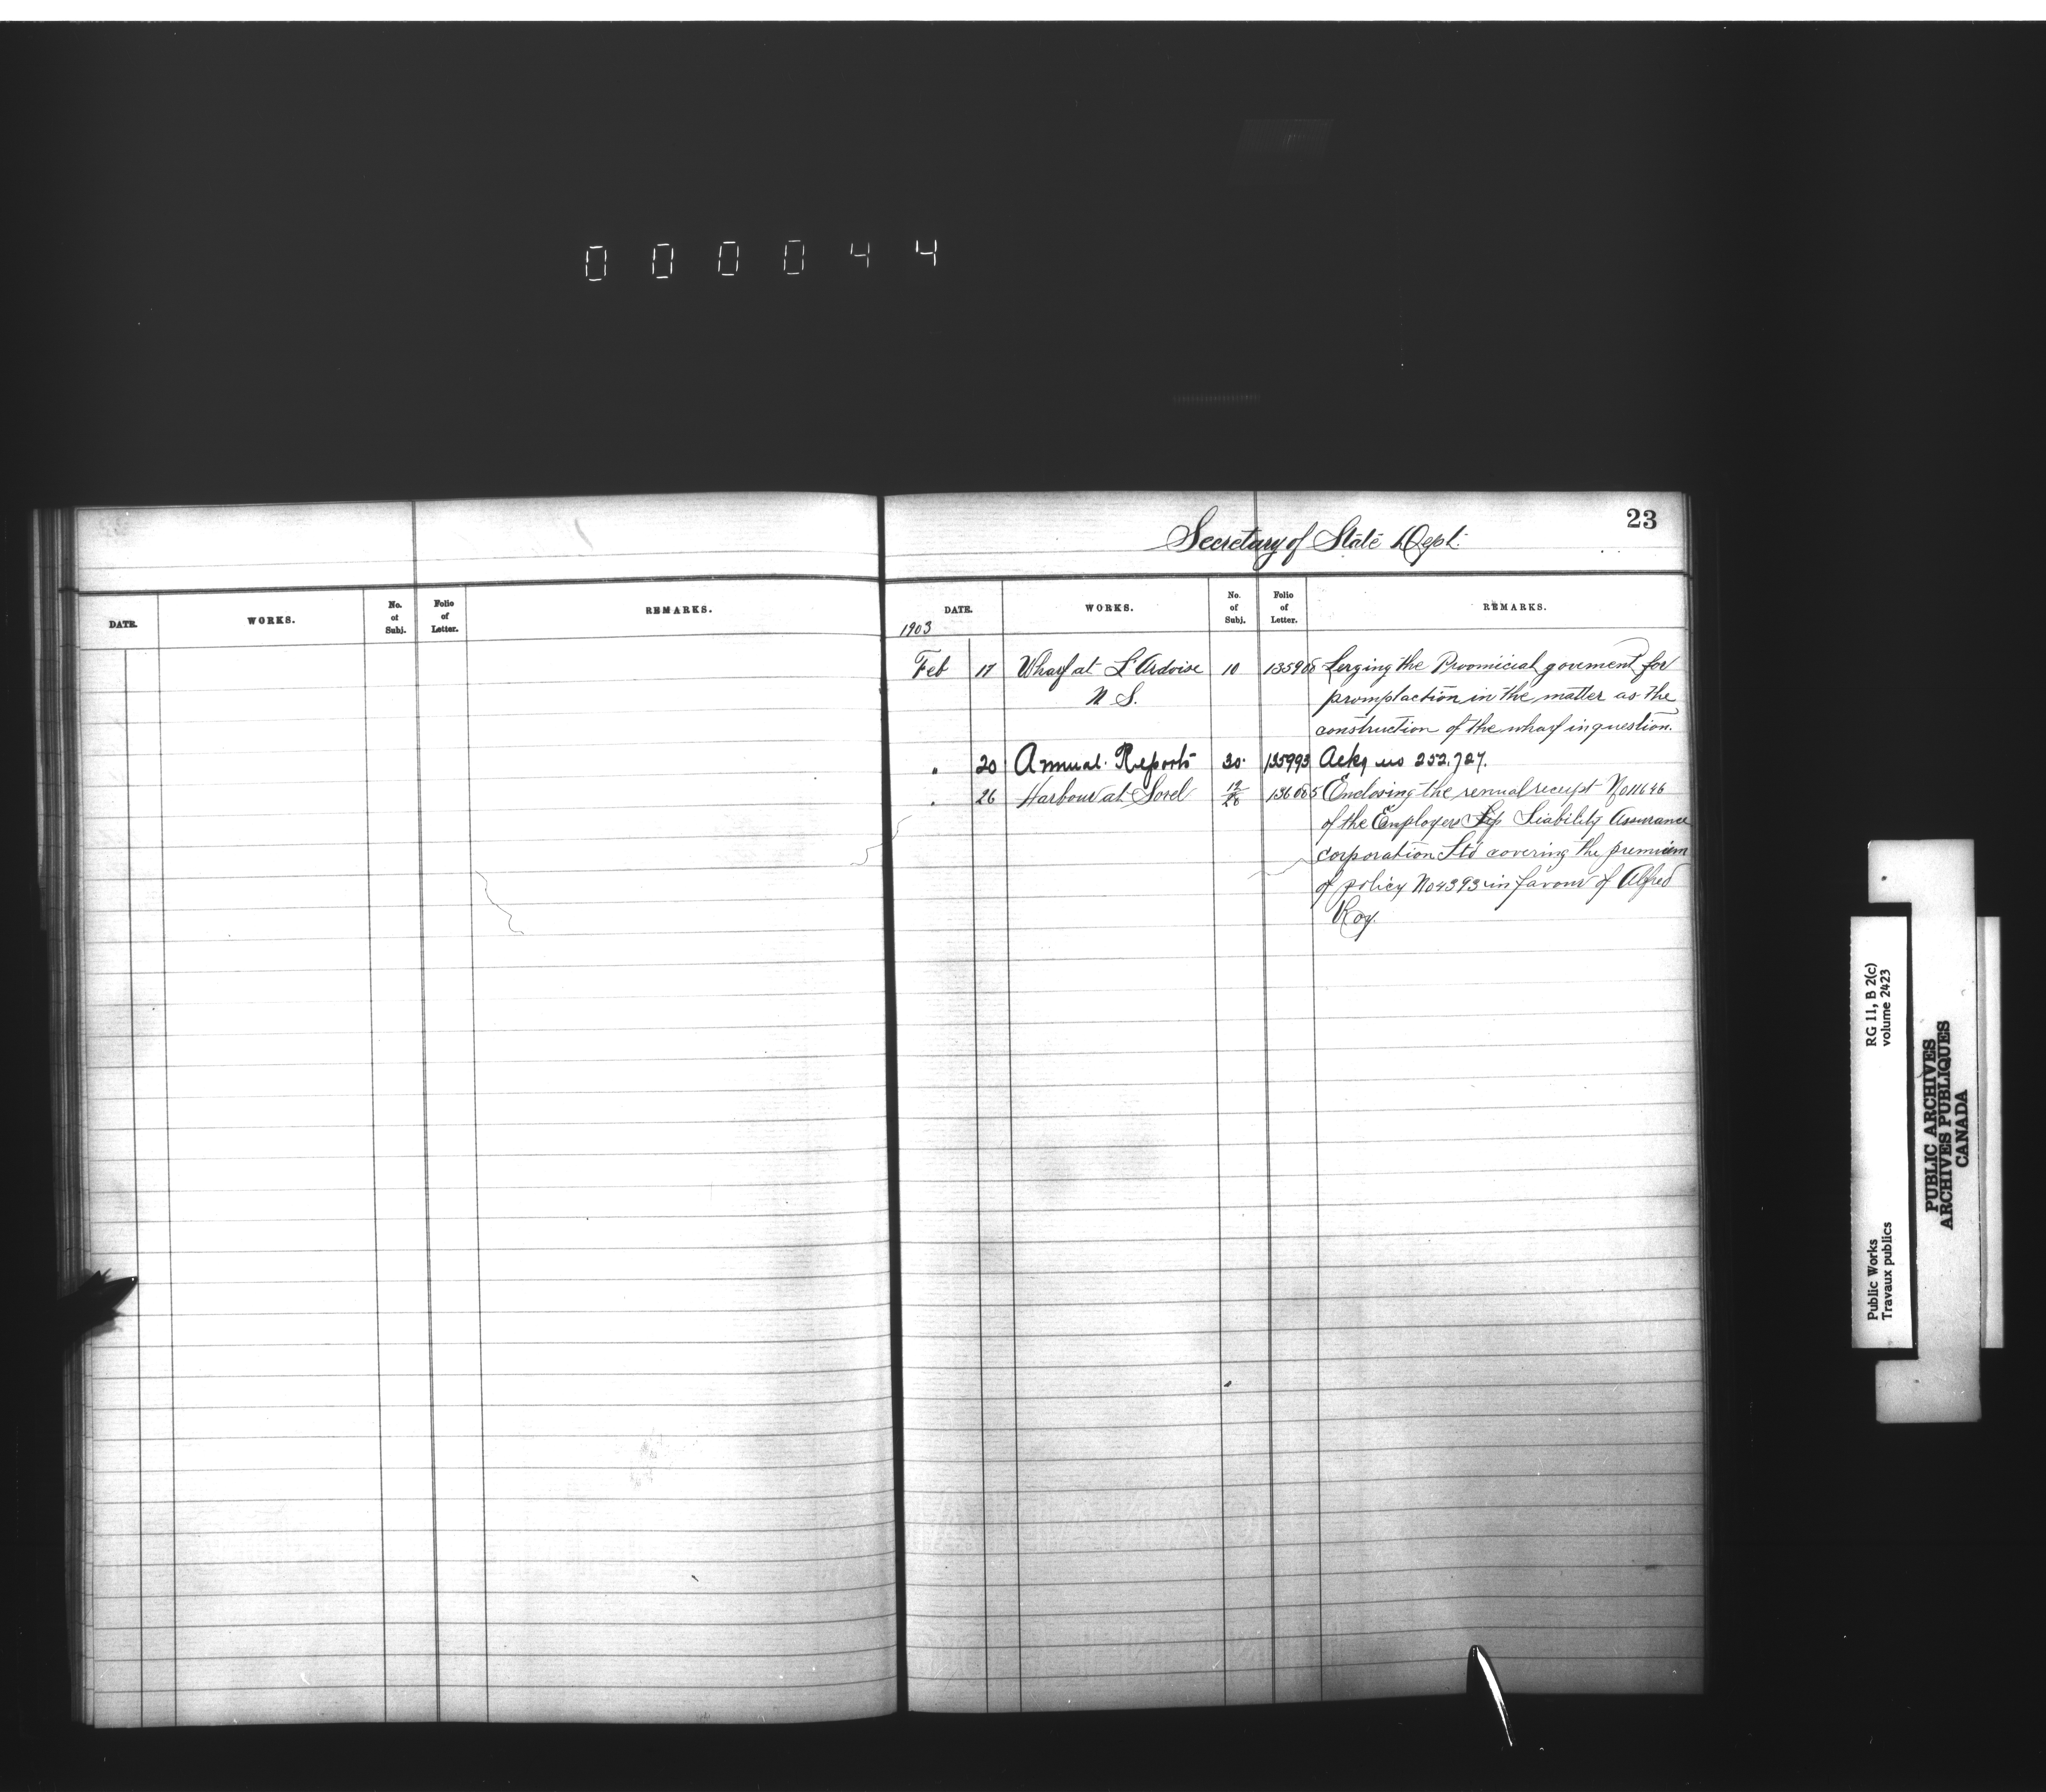 000044
23
Secretary of State Dept.
DATE. WORKS. No. of Subj. Folio of Letter. REMARKS.
DATE. WORKS. No. of Subj. Folio of Letter. REMARKS.
1903
Feb 17 Wharf at L'Ardoise 10 135900 Urging the Proomicial goverment for
N S. prompt action in the matter as the
construction of the wharf in question.
" 20 Annual Reports 30. 135993 Ackg us 252,727.
" 26 Harbour at Sorel 12/28 136005 Enclosing the renual receipt No 11646
of the Employers Liability Assurance
corporation Ltd covering the premium
of policy No 4393 in favour of Alfred
Roy.
RG 11, B 2(c)
volume 2423
Public Works
Travaux publics
PUBLIC ARCHIVES
ARCHIVES PUBLIQUES
CANADA